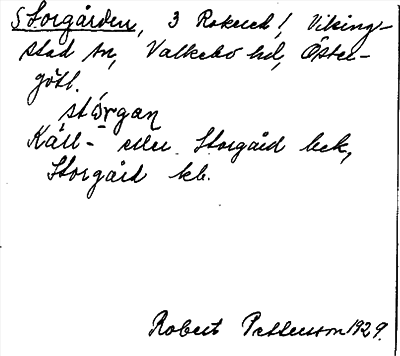 Storgården, 3 Rokeck! Viking-
stad sn, Valkebo hd, Öster-
götl.
stórgan
Käll- eller Storgård beck,
Storgård kb.
Robert Petterson 1929.